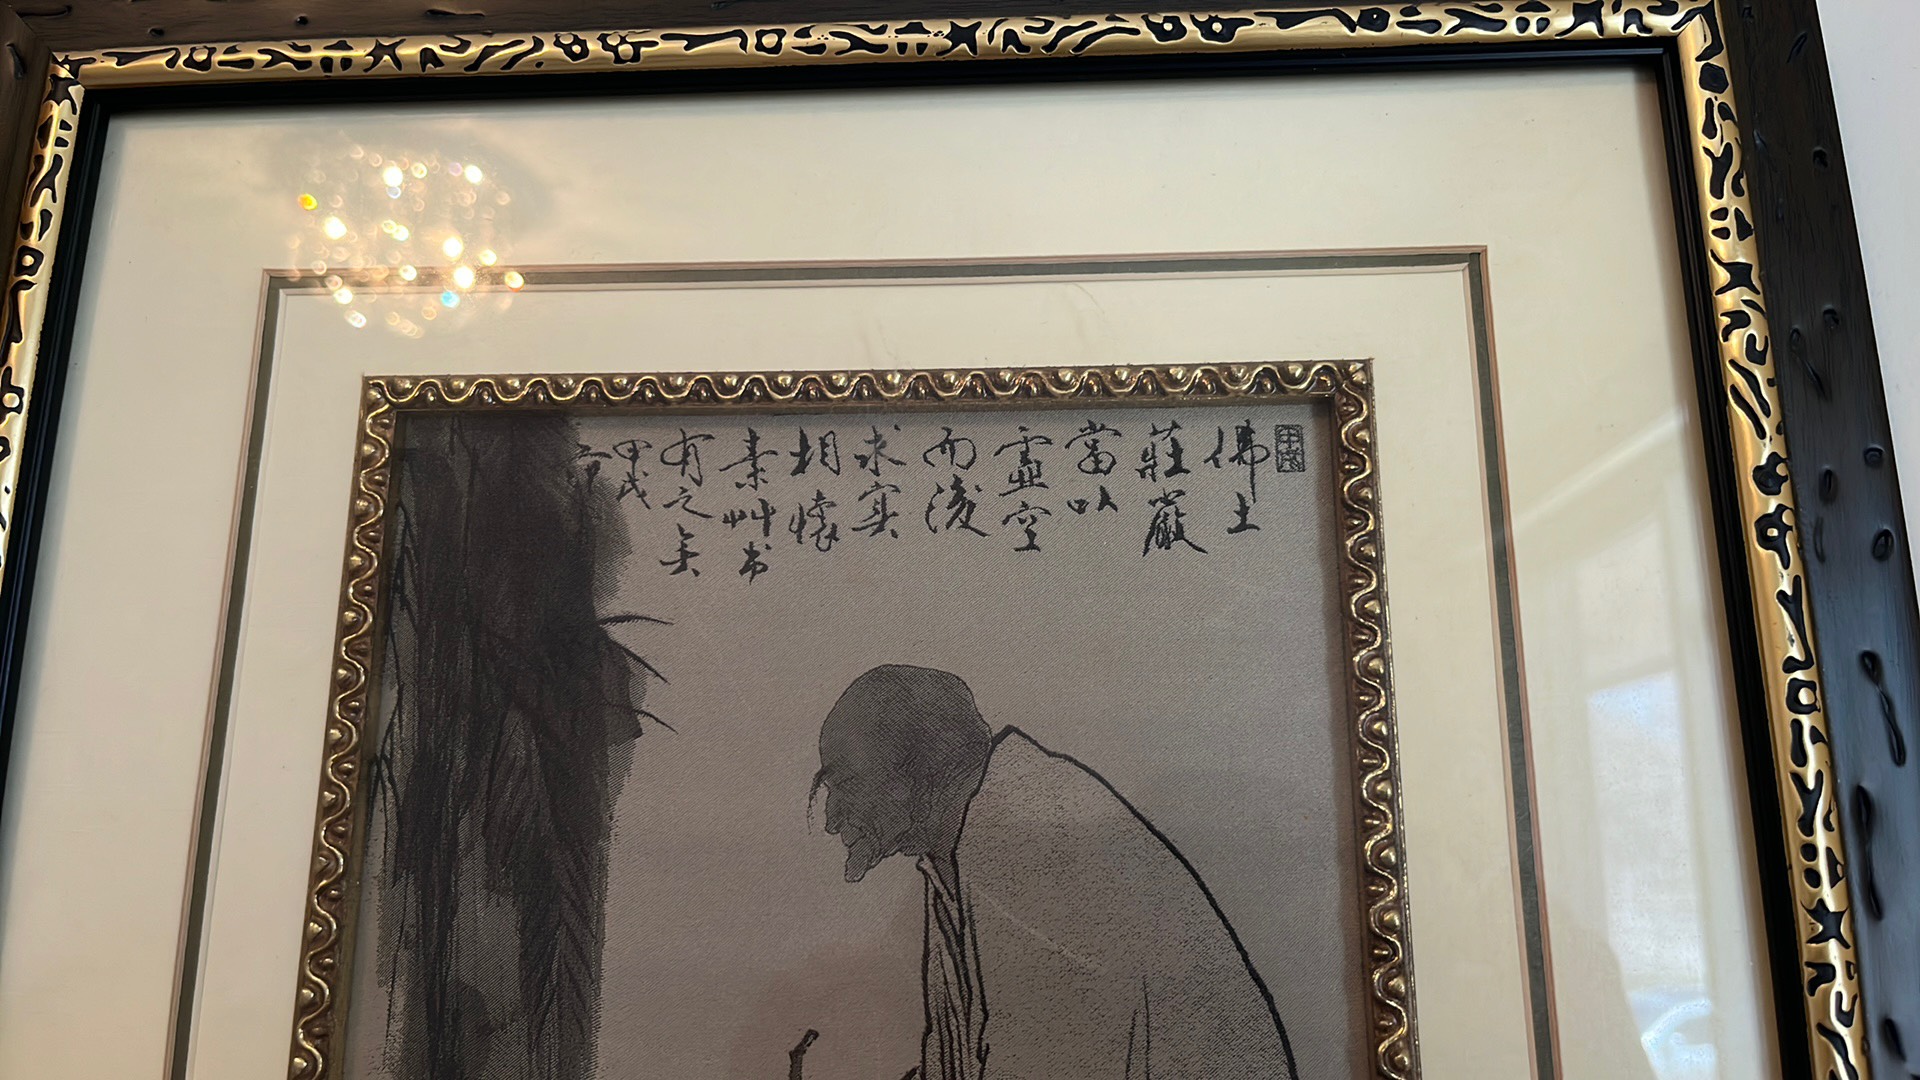 佛土
莊嚴
當以
虛空
而後
求实
相懷
素艸书
有之矣
甲戌